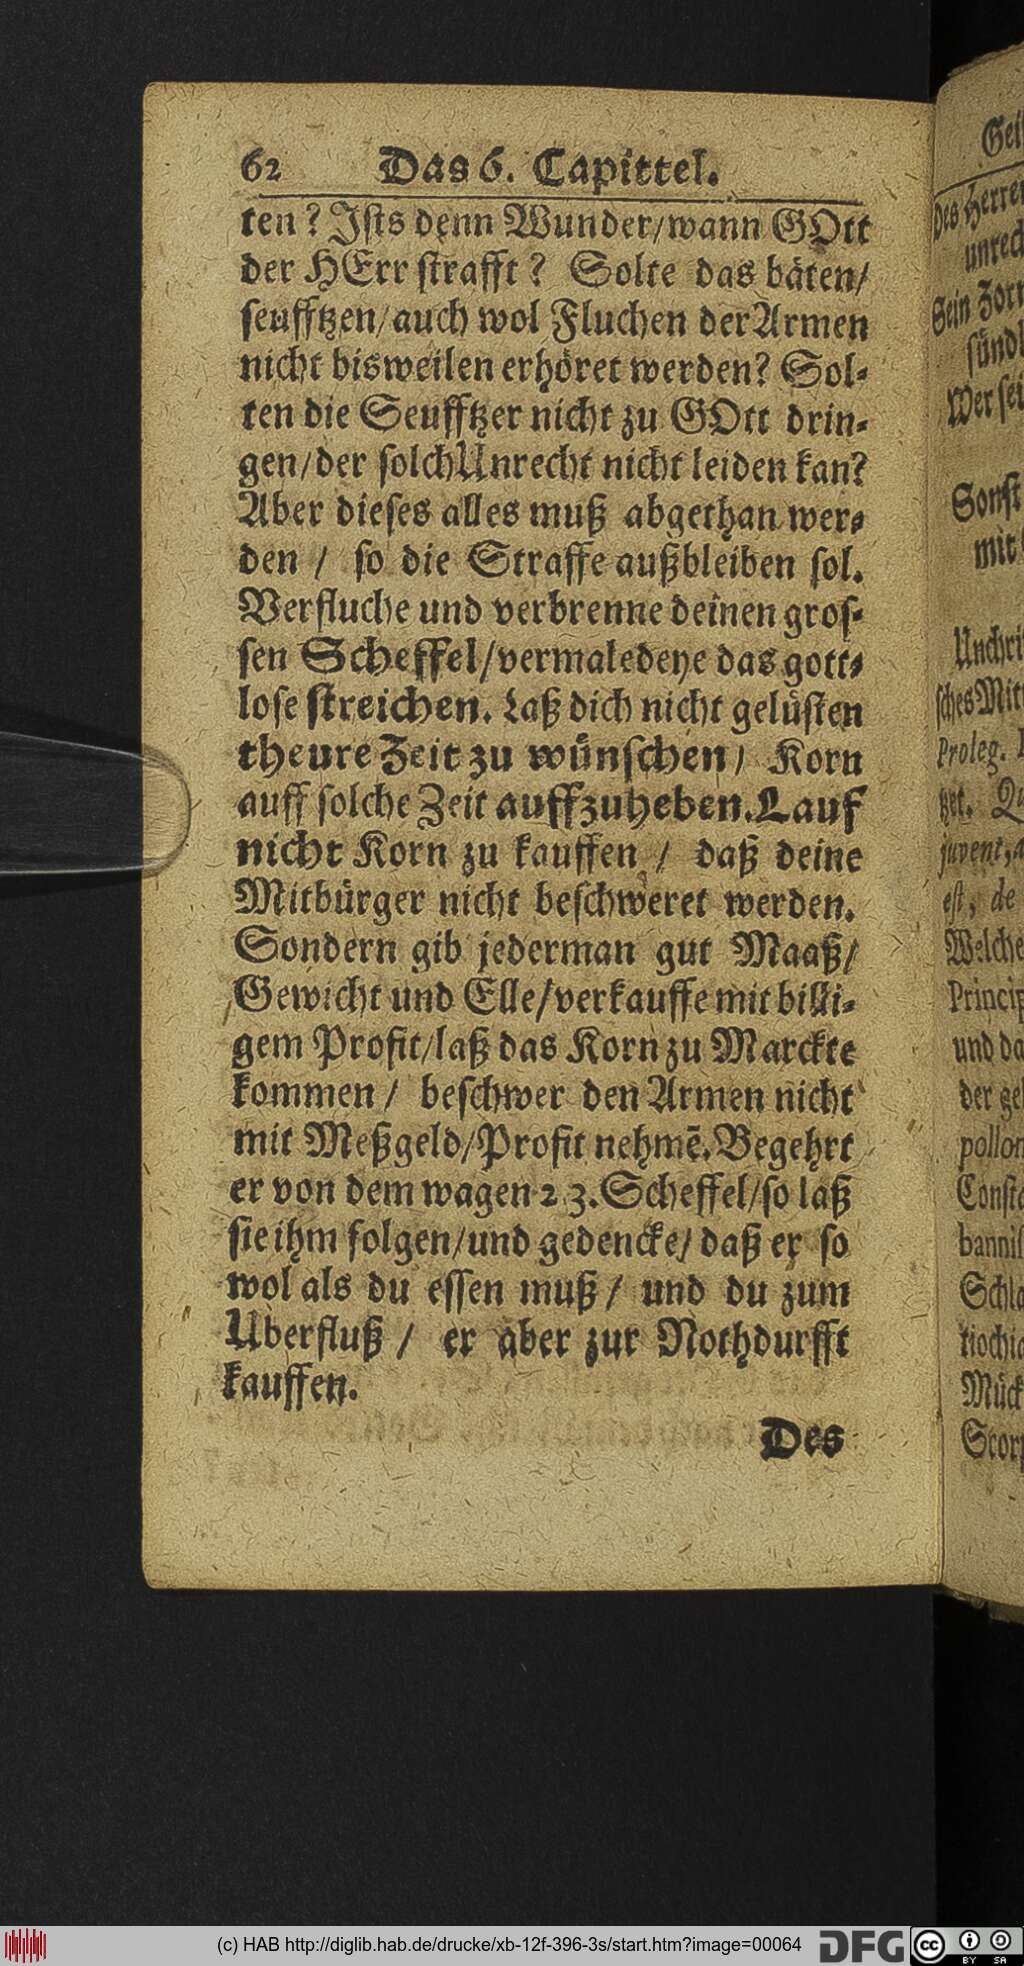 62 Das 6. Capittel.
ten? Ists denn Wunder/wann GOtt
der HErr strafft? Solte das bäten/
seufftzen/auch wol Fluchen der Armen
nicht bisweilen erhöret werden? Sol-
ten die Seufftzer nicht zu GOtt drin-
gen/der solch Unrecht nicht leiden kan?
Aber dieses alles muß abgethan wer-
den / so die Straffe außbleiben sol.
Verfluche und verbrenne deinen gros-
sen Scheffel/vermaledeye das gott-
lose streichen. Laß dich nicht gelüsten
theure Zeit zu wünschen/ Korn
auff solche Zeit auffzuheben. Lauf
nicht Korn zu kauffen / daß deine
Mitbürger nicht beschweret werden.
Sondern gib jederman gut Maaß/
Gewicht und Elle/verkauffe mit billi-
gem Profit/laß das Korn zu Marckte
kommen/ beschwer den Armen nicht
mit Meßgeld/Profit nehmē. Begehrt
er von dem wagen 2 3. Scheffel/so laß
sie ihm folgen/und gedencke/daß er so
wol als du essen muß/ und du zum
Uberfluß / er aber zur Nothdurfft
kauffen.
Des
des Herren
Sein Zorn
Wer sei
Sonst
mit
Unchri
sches Mit
Proleg.
tzet.
juvent,
est, de
Welche
Princip
und da
der ge
pollon
Consta
bannis
Schla
tiochia
Mück
Scorp
(c) HAB http://diglib.hab.de/drucke/xb-12f-396-3s/start.htm?image=00064
DFG
cc
BY SA